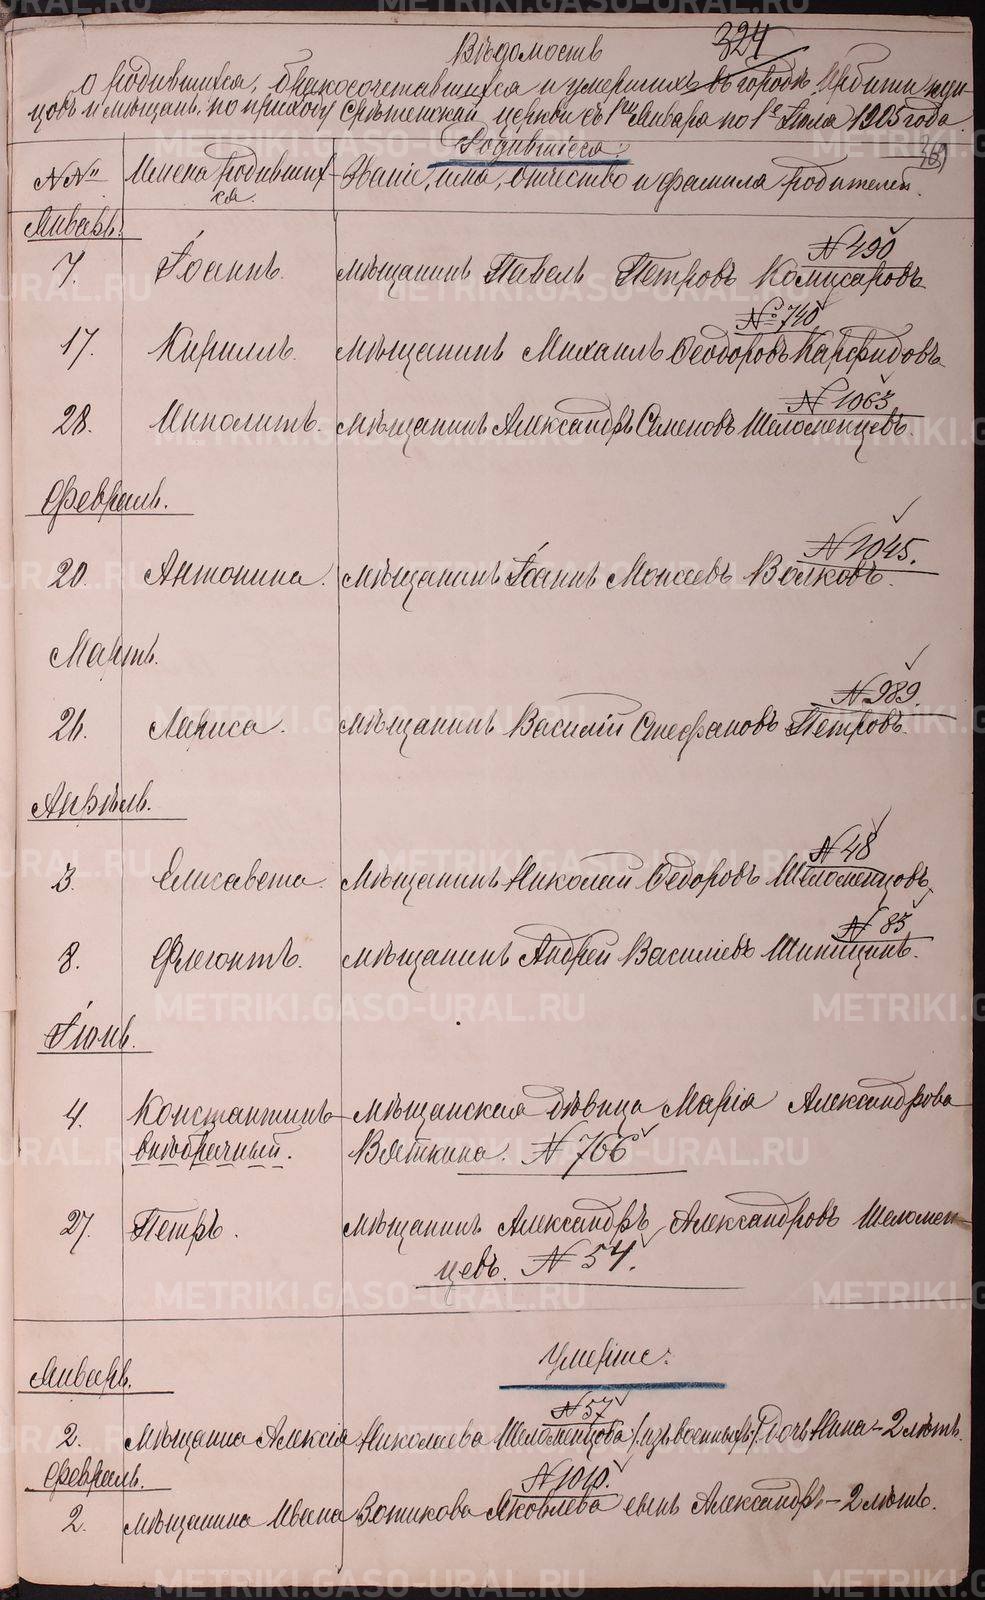 324
Вѣдомость
о родившихся, бракосочетавшихся и умершихъ въ городѣ Ирбити куп-
цовъ и мѣщанъ по приходу Срѣтенской церкви съ 1го Января по 1е Іюля 1905 года.
Родившіеся:
№№ Имена родивших-ся. Званіе, имя, отчество и фамилія родителей.
Январь.
№ 490
7. Іоаннъ. Мѣщанинъ Павелъ Петровъ Комисаровъ
№ 740
17. Кириллъ. Мѣщанинъ Михаилъ Ѳеодоровъ Карфидовъ
№ 1063
28. Ипполитъ. Мѣщанинъ Александръ Семеновъ Шеломенцевъ.
Февраль.
№ 1045.
20. Антонина. Мѣщанинъ Іоаннъ Моисеевъ Волковъ.
Мартъ.
№ 989.
26. Лариса. Мѣщанинъ Василій Стефановъ Петровъ.
Апрѣль.
№ 48
3. Елисавета. Мѣщанинъ Николай Ѳедоровъ Шеломенцовъ
№ 83
8. Флегонтъ. Мѣщанинъ Андрей Василіевъ Шипицинъ.
Іюнь.
4. Константинъ Мѣщанская дѣвица Марія Александрова
внѣбрачный. Вяткина. № 766
27. Петръ. Мѣщанинъ Александръ Александровъ Шеломен-
цевъ. № 54.
Умершіе:
Январь.
№ 57
2. Мѣщанина Алексія Николаева Шеломенцова /изъ военныхъ/ дочь Нина - 2 лѣтъ.
Февраль.
№ 1010.
2. Мѣщанина Ивана Зотикова Яковлева сынъ Александръ - 2 лѣтъ.
METRIKI.GASO-URAL.RU